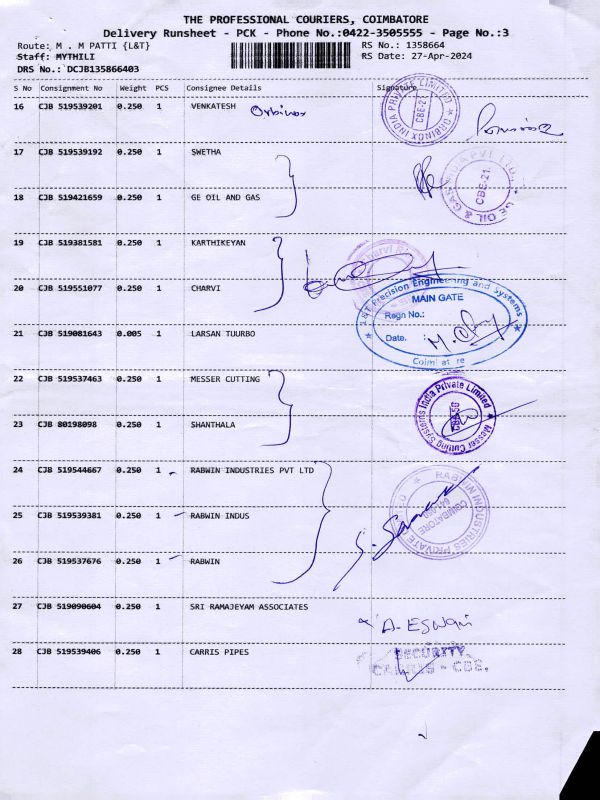 THE PROFESSIONAL COURIERS, COIMBATORE
Delivery Runsheet - PCK - Phone No.:0422-3505555 - Page No.:3
Route: M . M PATTI {L&T} RS No.: 1358664
Staff: MYTHILI RS Date: 27-Apr-2024
DRS No.: DCJB135866403
S No Consignment No Weight PCS Consignee Details Signature
16 CJB 519539201 0.250 1 VENKATESH Orbinox
ORBINOX INDIA PRIVATE LIMITED
CBE-21
17 CJB 519539192 0.250 1 SWETHA
18 CJB 519421659 0.250 1 GE OIL AND GAS
GE OIL & GAS INDIA PVT LTD.
CBE-21.
19 CJB 519381581 0.250 1 KARTHIKEYAN
20 CJB 519551077 0.250 1 CHARVI
Charvi
L&T Precision Engineering and Systems
MAIN GATE
Regn No.:
Date. :
Coimbatore
21 CJB 519081643 0.005 1 LARSAN TUURBO
22 CJB 519537463 0.250 1 MESSER CUTTING
23 CJB 80198098 0.250 1 SHANTHALA
Messer Cutting Systems India Private Limited
CBE-50
24 CJB 519544667 0.250 1 RABWIN INDUSTRIES PVT LTD
25 CJB 519539381 0.250 1 RABWIN INDUS
26 CJB 519537676 0.250 1 RABWIN
RABWIN INDUSTRIES PRIVATE
COIMBATORE
27 CJB 519090604 0.250 1 SRI RAMAJEYAM ASSOCIATES
A. ESwari
28 CJB 519539406 0.250 1 CARRIS PIPES
SECURITY
CARRIS - CBE.